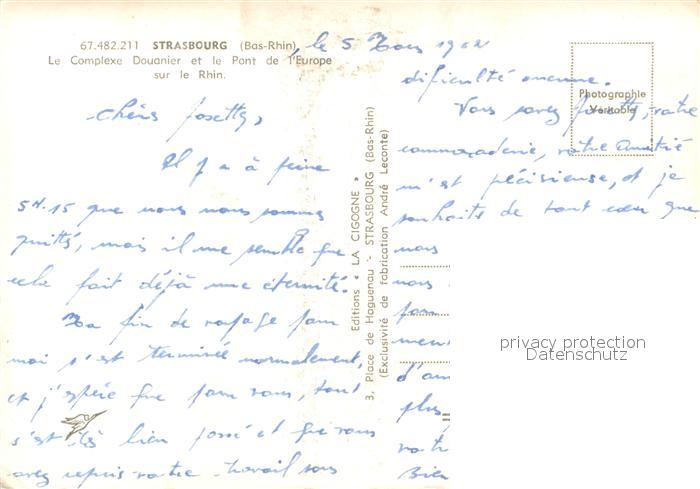 67.482.211 STRASBOURG (Bas-Rhin)
Le Complexe Douanier et le Pont de l'Europe
sur le Rhin.
le 5 Mars 1962
Chère Josette,
Il y a à peine
5H.15 que nous nous sommes
quittés, mais il me semble que
cela fait déjà une éternité.
La fin de voyage pour
moi s'est terminée normalement,
et j'espère que pour vous, tout
s'est très bien passé et que vous
avez repris votre travail sans
Editions « LA CIGOGNE »
3, Place de Haguenau - STRASBOURG (Bas-Rhin)
(Exclusivité de fabrication André Leconte)
Photographie
Véritable
difficulté aucune.
Vous savez Josette, votre
camaraderie, votre amitié
m'est précieuse, et je
souhaite de tout cœur que
nous
nous
d'am
plus
votr
Bien
privacy protection
Datenschutz